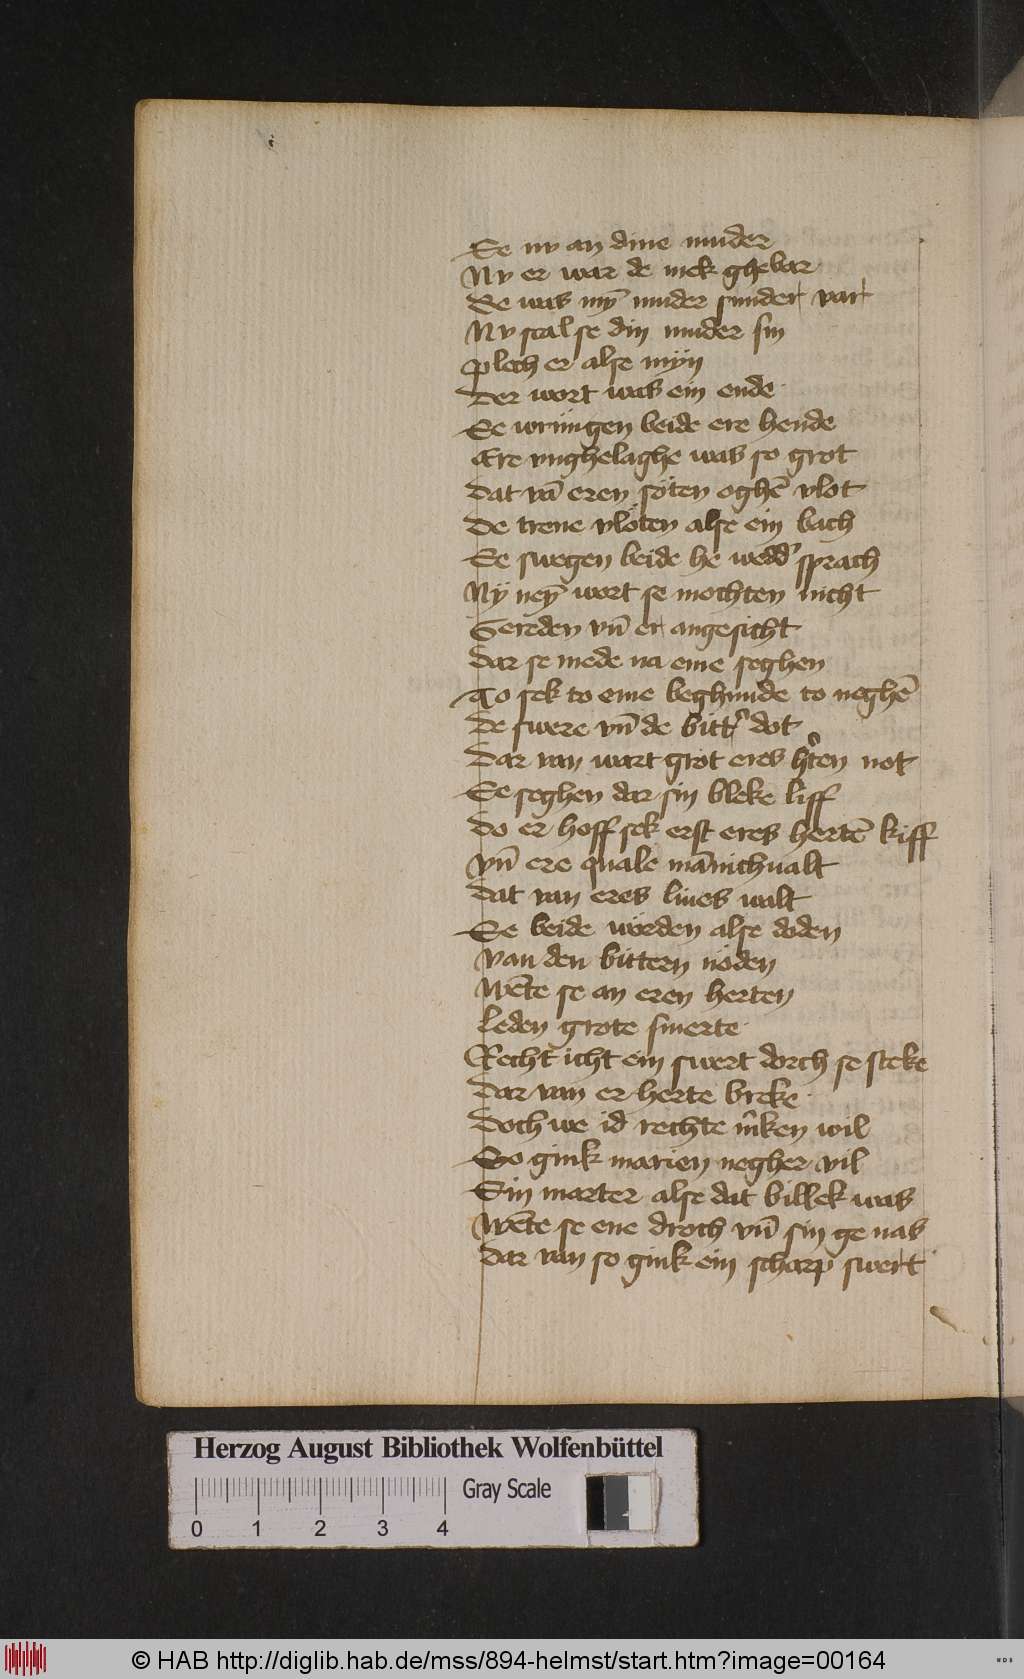 Se nv an dine muder
Nv er war de mek ghebar
Se was mȳ muder sunder var
Nv scal se din muder sin
Plech er alse myn
Der wort was ein ende
Se wrungen beide ere hende
Ere vnghelaghe was so grot
Dat vā eren soten oghē vlot
De trene vloten alse ein bach
Se swegen beide he wedd' sprach
Ny ney wort se mochten nicht
Sereden vn̄ er angesicht
Dar se mede na eme seghen
To sek to eme beghunde to neghē
De swere vn̄ de bitt' dot
Dar van wart grot eres h'ten not
Se seghen dar sin bleke liff
Do er hoff sek erst eres hertē kiff
Vn̄ ere quale mānichualt
Dat van eres liues walt
Se beide worden alse doden
Van den bittern noden
Wēte se an eren herten
Leden grote smerte
Recht icht ein swert dorch se steke
Dar van er herte breke
Doch we id rechte m'ken wil
So gink marien negher vil
Sin marter alse dat billek was
Wēte se ene droch vn̄ sin ge nas
Dar van so gink ein scharp swert
Herzog August Bibliothek Wolfenbüttel
Gray Scale
0 1 2 3 4
© HAB http://diglib.hab.de/mss/894-helmst/start.htm?image=00164